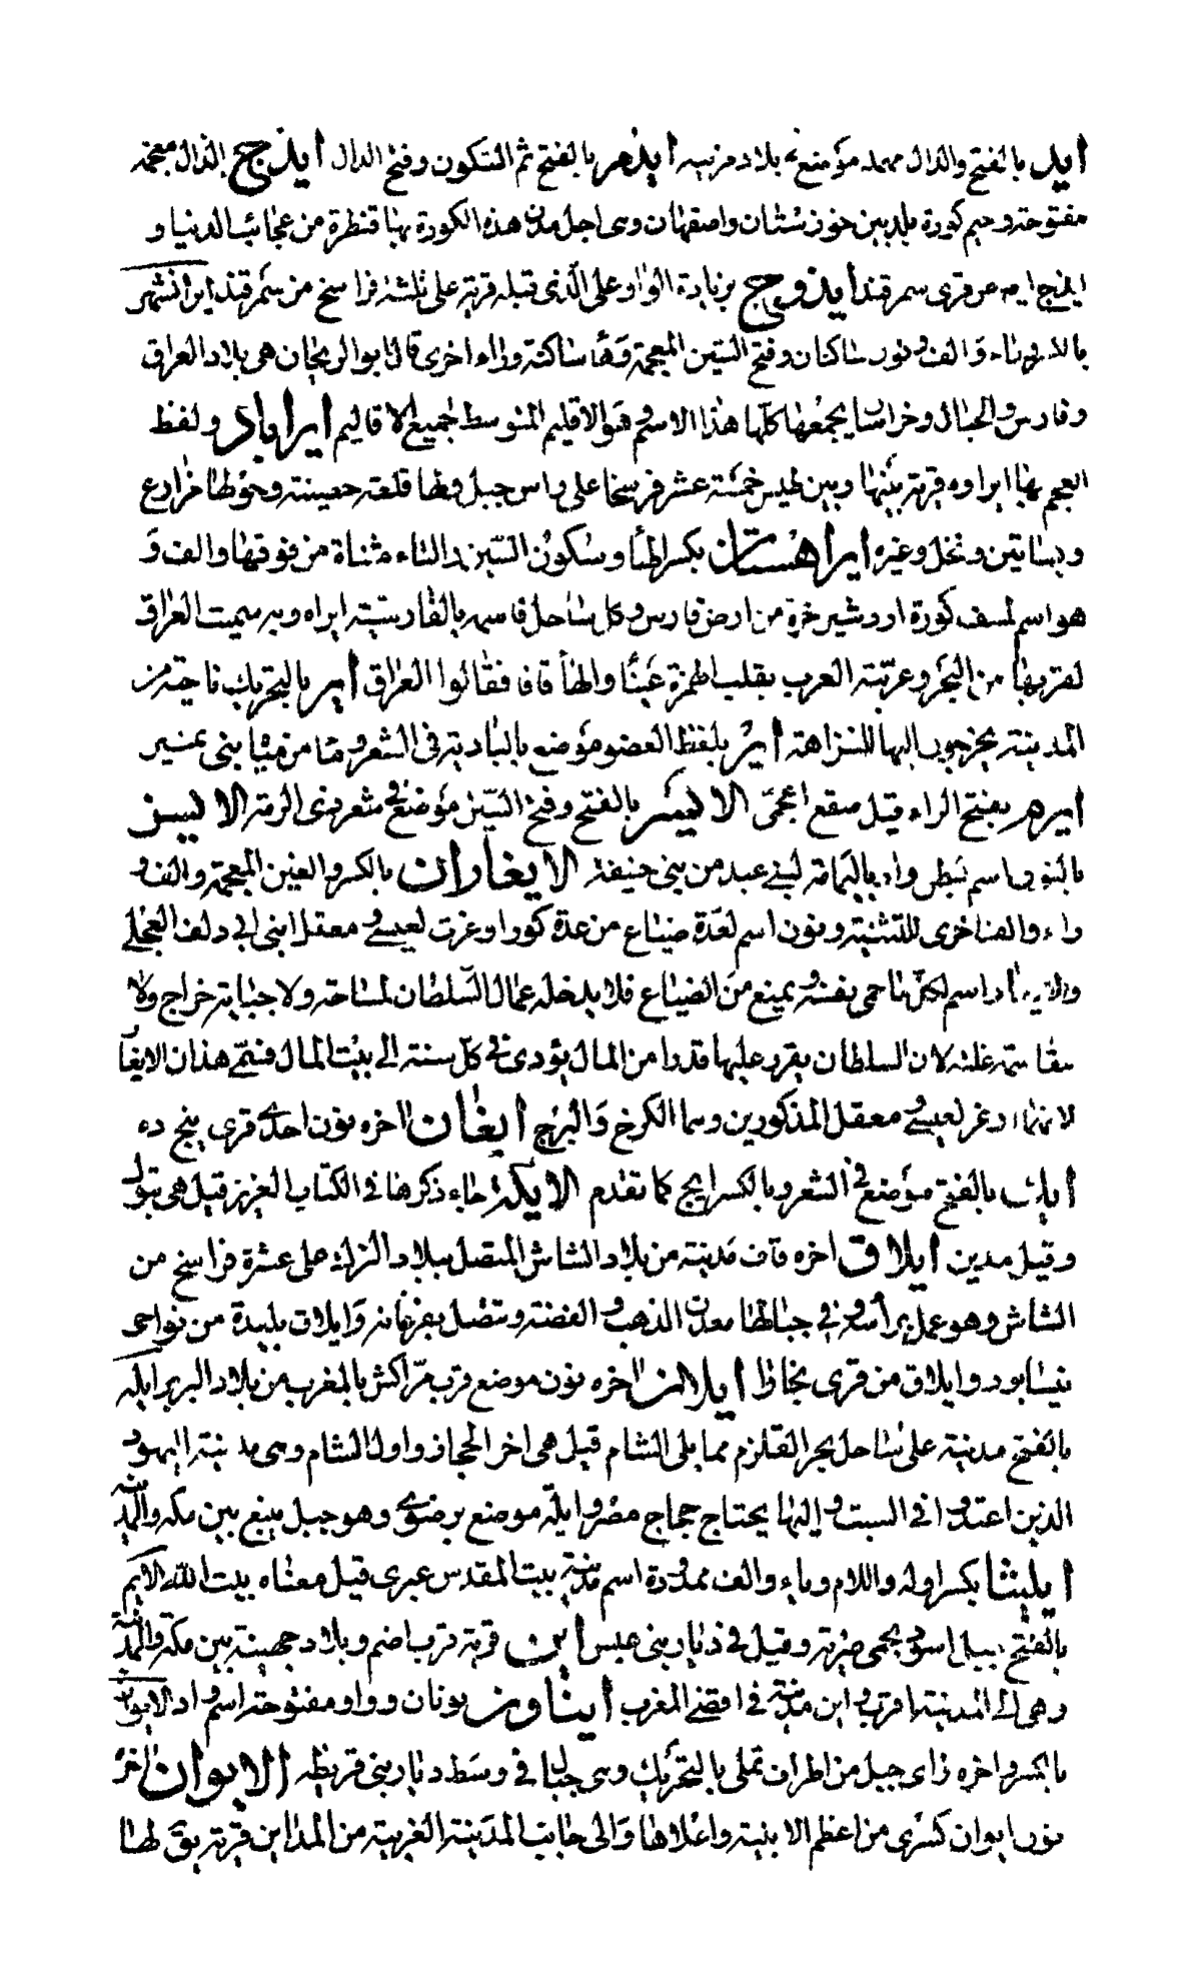 ايد بالفتح والدال مهملة موضع ببلاد مزينه ايذهر بالفتح ثم السكون وفتح الدال ايذجج الذال معجمة
مفتوحة وجيم كورة بلد بين خوزستان واصفهان وهى اجل مدن هذه الكورة بها قنطرة من عجائب الدنيا و
ايذج من قرى سمرقند ايذوجج بزيادة الواو على الذى قبله قرية على ثلثة فراسخ من سمرقند ايرانشهر
بالراء والف ونون ساكنان وفتح الشين المعجمة وهاء ساكنة وراء اخرى قال ابو الريحان هى بلاد العراق
وفارس والجبال وخراسان يجمعها كلها هذا الاسم وهو الاقليم المتوسط لجميع الاقاليم ايراباد ولفظ
العجم بها ايراوه قرية بينها وبين طبس خمسة عشر فرسخا على راس جبل ولها قلعة حصينة وحولها مزارع
وبساتين ونخل وغيره ايراهستان بكسر الهاء وسكون السين والتاء مثناة من فوقها والف و
هو اسم لسيف كورة اردشير خرة من ارض فارس وكل ساحل فاسمه بالفارسية ايراه وبه سميت العراق
لقربها من البحر وعربته العرب بقلب الهمزة عينا والهاء قافا فقالوا العراق اير بالتحريك ناحية من
المدينة يخرجون اليها للنزاهة اير بلفظ العضو موضع بالبادية فى الشعر وما من مياه بنى نمير
ايرهر بفتح الراء قيل صقع اعجمى الايسر بالفتح وفتح السين موضع فى شعر ذى الرمة الايسن
بالنون اسم لبطن واد باليمامة لبنى عبيد من بنى حنيفة الايغاران بالكسر والغين المعجمة والف و
راء والف اخرى للتثنية ونون اسم لعدة ضياع من عدة كور اوغرت لعيسى و معقل ابنى ابى دلف العجلى
والايغار اسم لكل ما حمى نفسه ويمنع من الضياع فلا يدخله عمال السلطان لمساحة ولا جباية خراج ولا
مقاسمة غلة لان السلطان يقرر عليها قدرا من المال يؤدى فى كل سنة الى بيت المال فسمى هذان الايغا
لانهما اوغر لعيسى و معقل المذكورين وهما الكرخ والبرج ايغان اخره نون احدى قرى پنج ده
ايك بالفتح موضع فى الشعر وبالكسر ايج كما تقدم الايكة جاء ذكرها فى الكتاب العزيز قيل هى تبوك
وقيل مدين ايلاق اخره قاف مدينة من بلاد الشاش المتصل ببلاد الترك على عشرة فراسخ من
الشاش وهو عمل برأسه وفى جبالها معدن الذهب و الفضة وتتصل بفرغانه وايلاق بليدة من نواحى
نيسابور وايلاق من قرى بخارا ايلان اخره نون موضع قرب مراكش بالمغرب من بلاد البربر ايلة
بالفتح مدينة على ساحل بحر القلزم مما يلى الشام قيل هى اخر الحجاز واول الشام وهى مدينة اليهود
الذين اعتدوا فى السبت و اليها يجتاز حجاج مصر وايلة موضع برضوى وهو جبل ينبع بين مكه والمدينة
ايلياء بكسر اوله واللام وياء والف ممدودة اسم مدينة بيت المقدس عبرى قيل معناه بيت الله الايم
بالفتح جبل اسود بحمى ضرية وقيل فى ديار بنى عبس اين قرية قرب اضم وبلاد جهينة بين مكة والمدينة
وهى الى المدينة اقرب و اين مدينة فى اقصى المغرب ايناون نونان وواو مفتوحة اسم واد الايواز
بالكسر واخره زاى جبل من اطراف نملى بالتحريك وهى جبال فى وسط ديار بنى قريظه الايوان اخره
نون ايوان كسرى من اعظم الابنية واعلاها والى جانب المدينة الغربية من المداين قرية يق لها